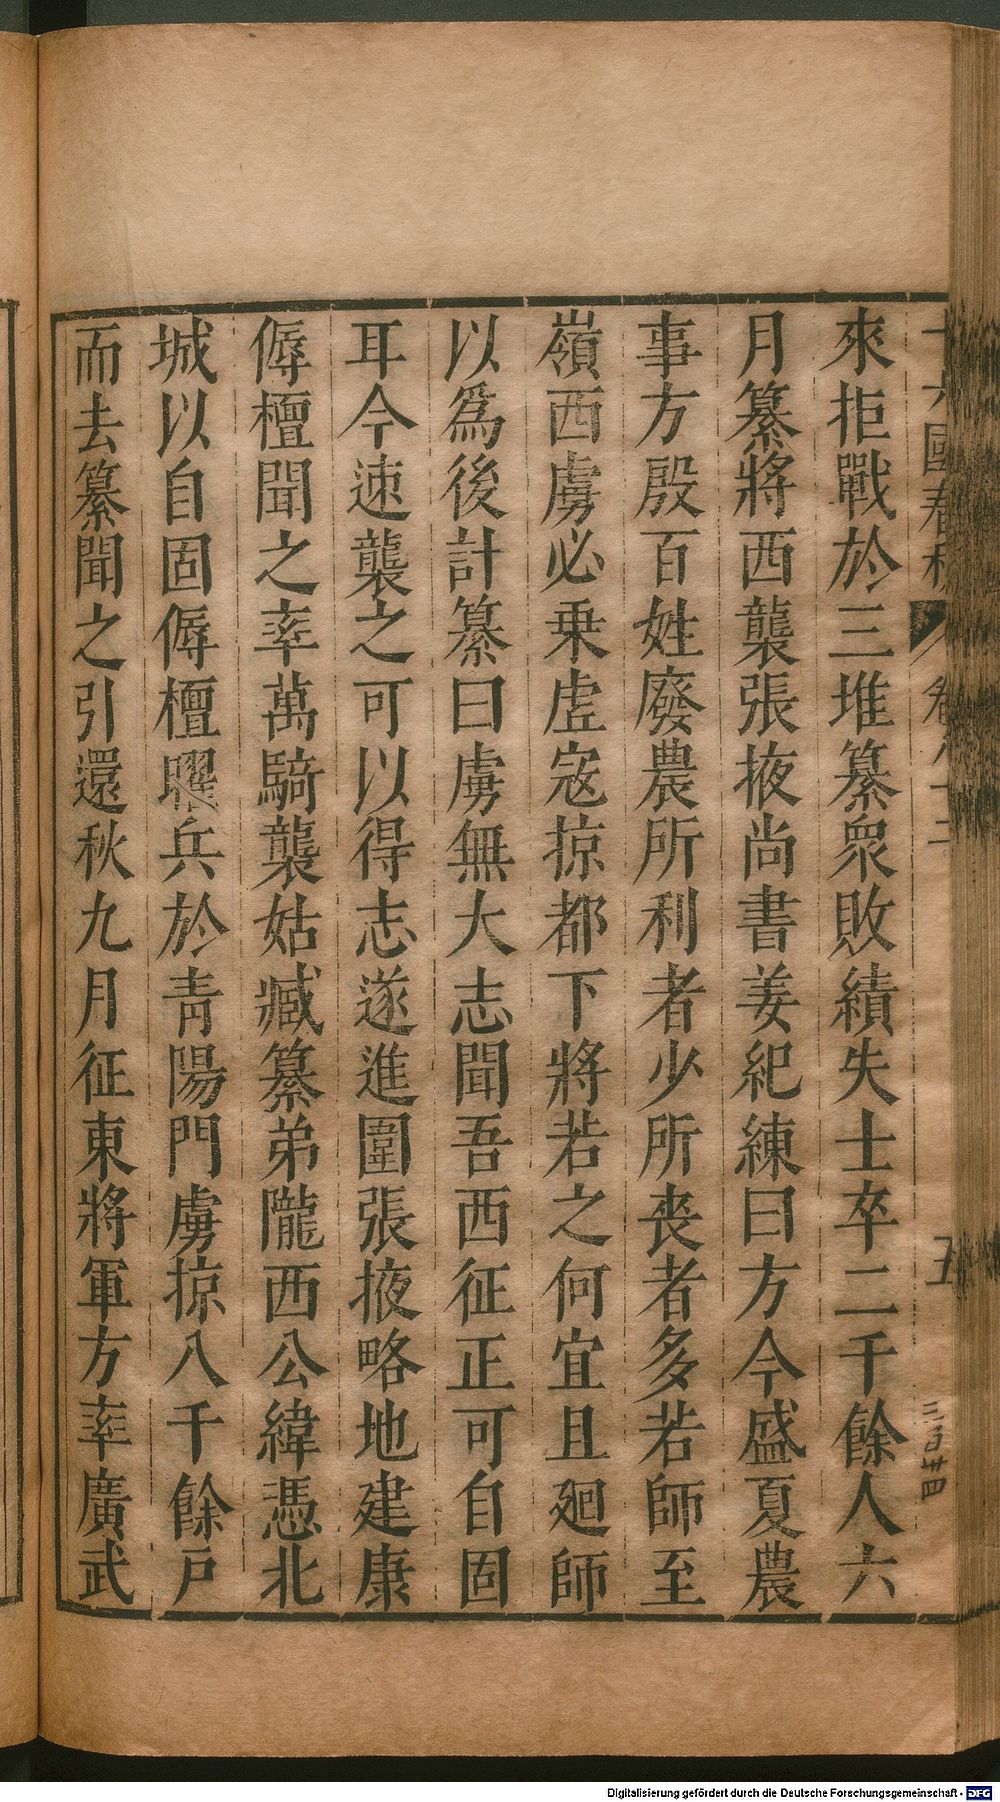 十六國春秋 卷八十三 五 三百廿四
來拒戰於三堆纂衆敗績失士卒二千餘人六
月纂將西襲張掖尚書姜紀練曰方今盛夏農
事方殷百姓廢農所利者少所喪者多若師至
嶺西虜必乗虛寇掠都下將若之何宜且廻師
以爲後計纂曰虜無大志聞吾西征正可自固
耳今速襲之可以得志遂進圍張掖略地建康
傉檀聞之率萬騎襲姑臧纂弟隴西公緯憑北
城以自固傉檀曜兵於青陽門虜掠八千餘戸
而去纂聞之引還秋九月征東將軍方率廣武
Digitalisierung gefördert durch die Deutsche Forschungsgemeinschaft - DFG